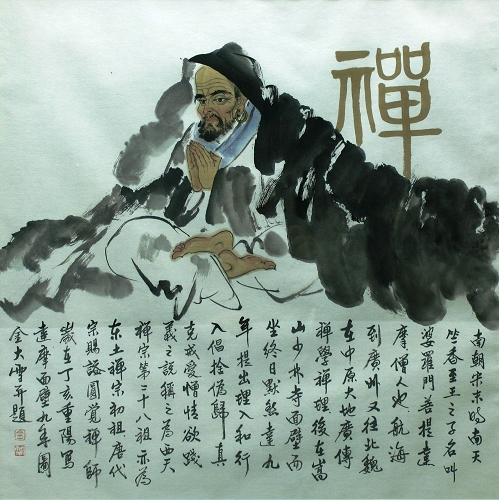 禪
南朝宋末時南天
竺香至王之子名叫
婆羅門菩提達
摩僧人也航海
到廣州又往北魏
在中原大地廣傳
禪學禪理後在嵩
山少林寺面壁而
坐終日默然達九
年提出理入和行
入倡捨偽歸真
克戒愛憎情欲踐
義之說稱之為西天
禪宗第二十八祖亦為
東土禪宗初祖唐代
宗賜謚圓覺禪師
歲在丁亥重陽寫
達摩面壁九年圖
金大雪并題